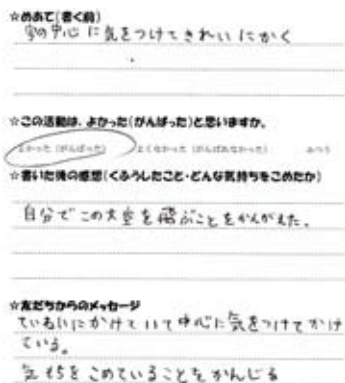 ☆めあて(書く前)
字の中心に気をつけてきれいにかく
☆この活動は、よかった(がんばった)と思いますか。
よかった(がんばった) よくなかった(がんばれなかった) ふつう
☆書いた後の感想(くふうしたこと・どんな気持ちをこめたか)
自分でこの大空を飛ぶことをかんがえた。
☆友だちからのメッセージ
ていねいにかけていて中心に気をつけてかけ
ている。
気もちをこめていることをかんじる